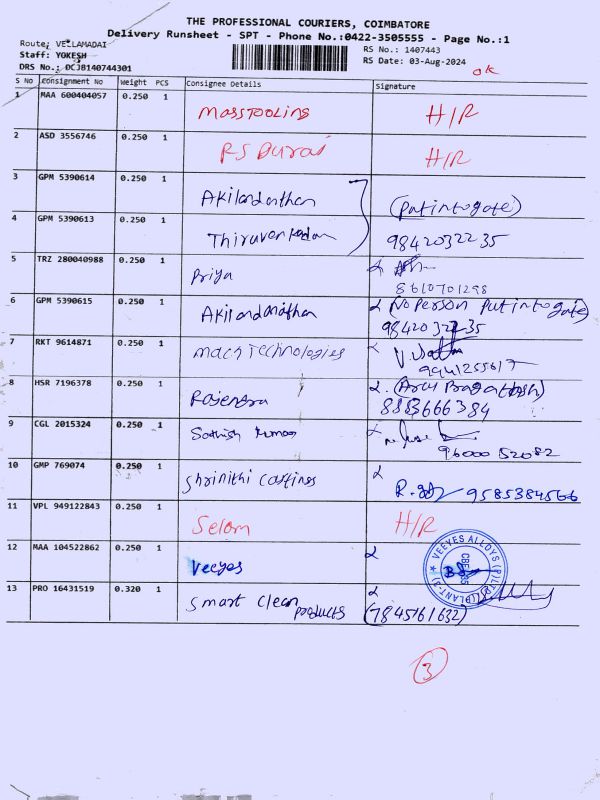 THE PROFESSIONAL COURIERS, COIMBATORE
Delivery Runsheet - SPT - Phone No.:0422-3505555 - Page No.:1
Route: VELLAMADAI
Staff: YOKESH
DRS No.: DCJ8140744301
RS No.: 1407443
RS Date: 03-Aug-2024
OK
S No Consignment No Weight PCS Consignee Details Signature
1 MAA 600404057 0.250 1 Masstooling H/R
2 ASD 3556746 0.250 1 RS Durai H/R
3 GPM 5390614 0.250 1 (Put into gate)
4 GPM 5390613 0.250 1 9842032235
5 TRZ 280040988 0.250 1 Priya
8610701298
6 GPM 5390615 0.250 1 (No Person Put into gate)
9842032235
7 RKT 9614871 0.250 1 mach Technologies
9941255617
8 HSR 7196378 0.250 1 Rajendra
8883666384
9 CGL 2015324 0.250 1 Sathish Kumar
9600052082
10 GMP 769074 0.250 1 Shrinithi Castings
9585384566
11 VPL 949122843 0.250 1 Selam H/R
12 MAA 104522862 0.250 1 Veeyes
VEEYES ALLOYS (P) LTD (PLANT-3)
13 PRO 16431519 0.320 1 Smart Clean Products (7845161632)
3